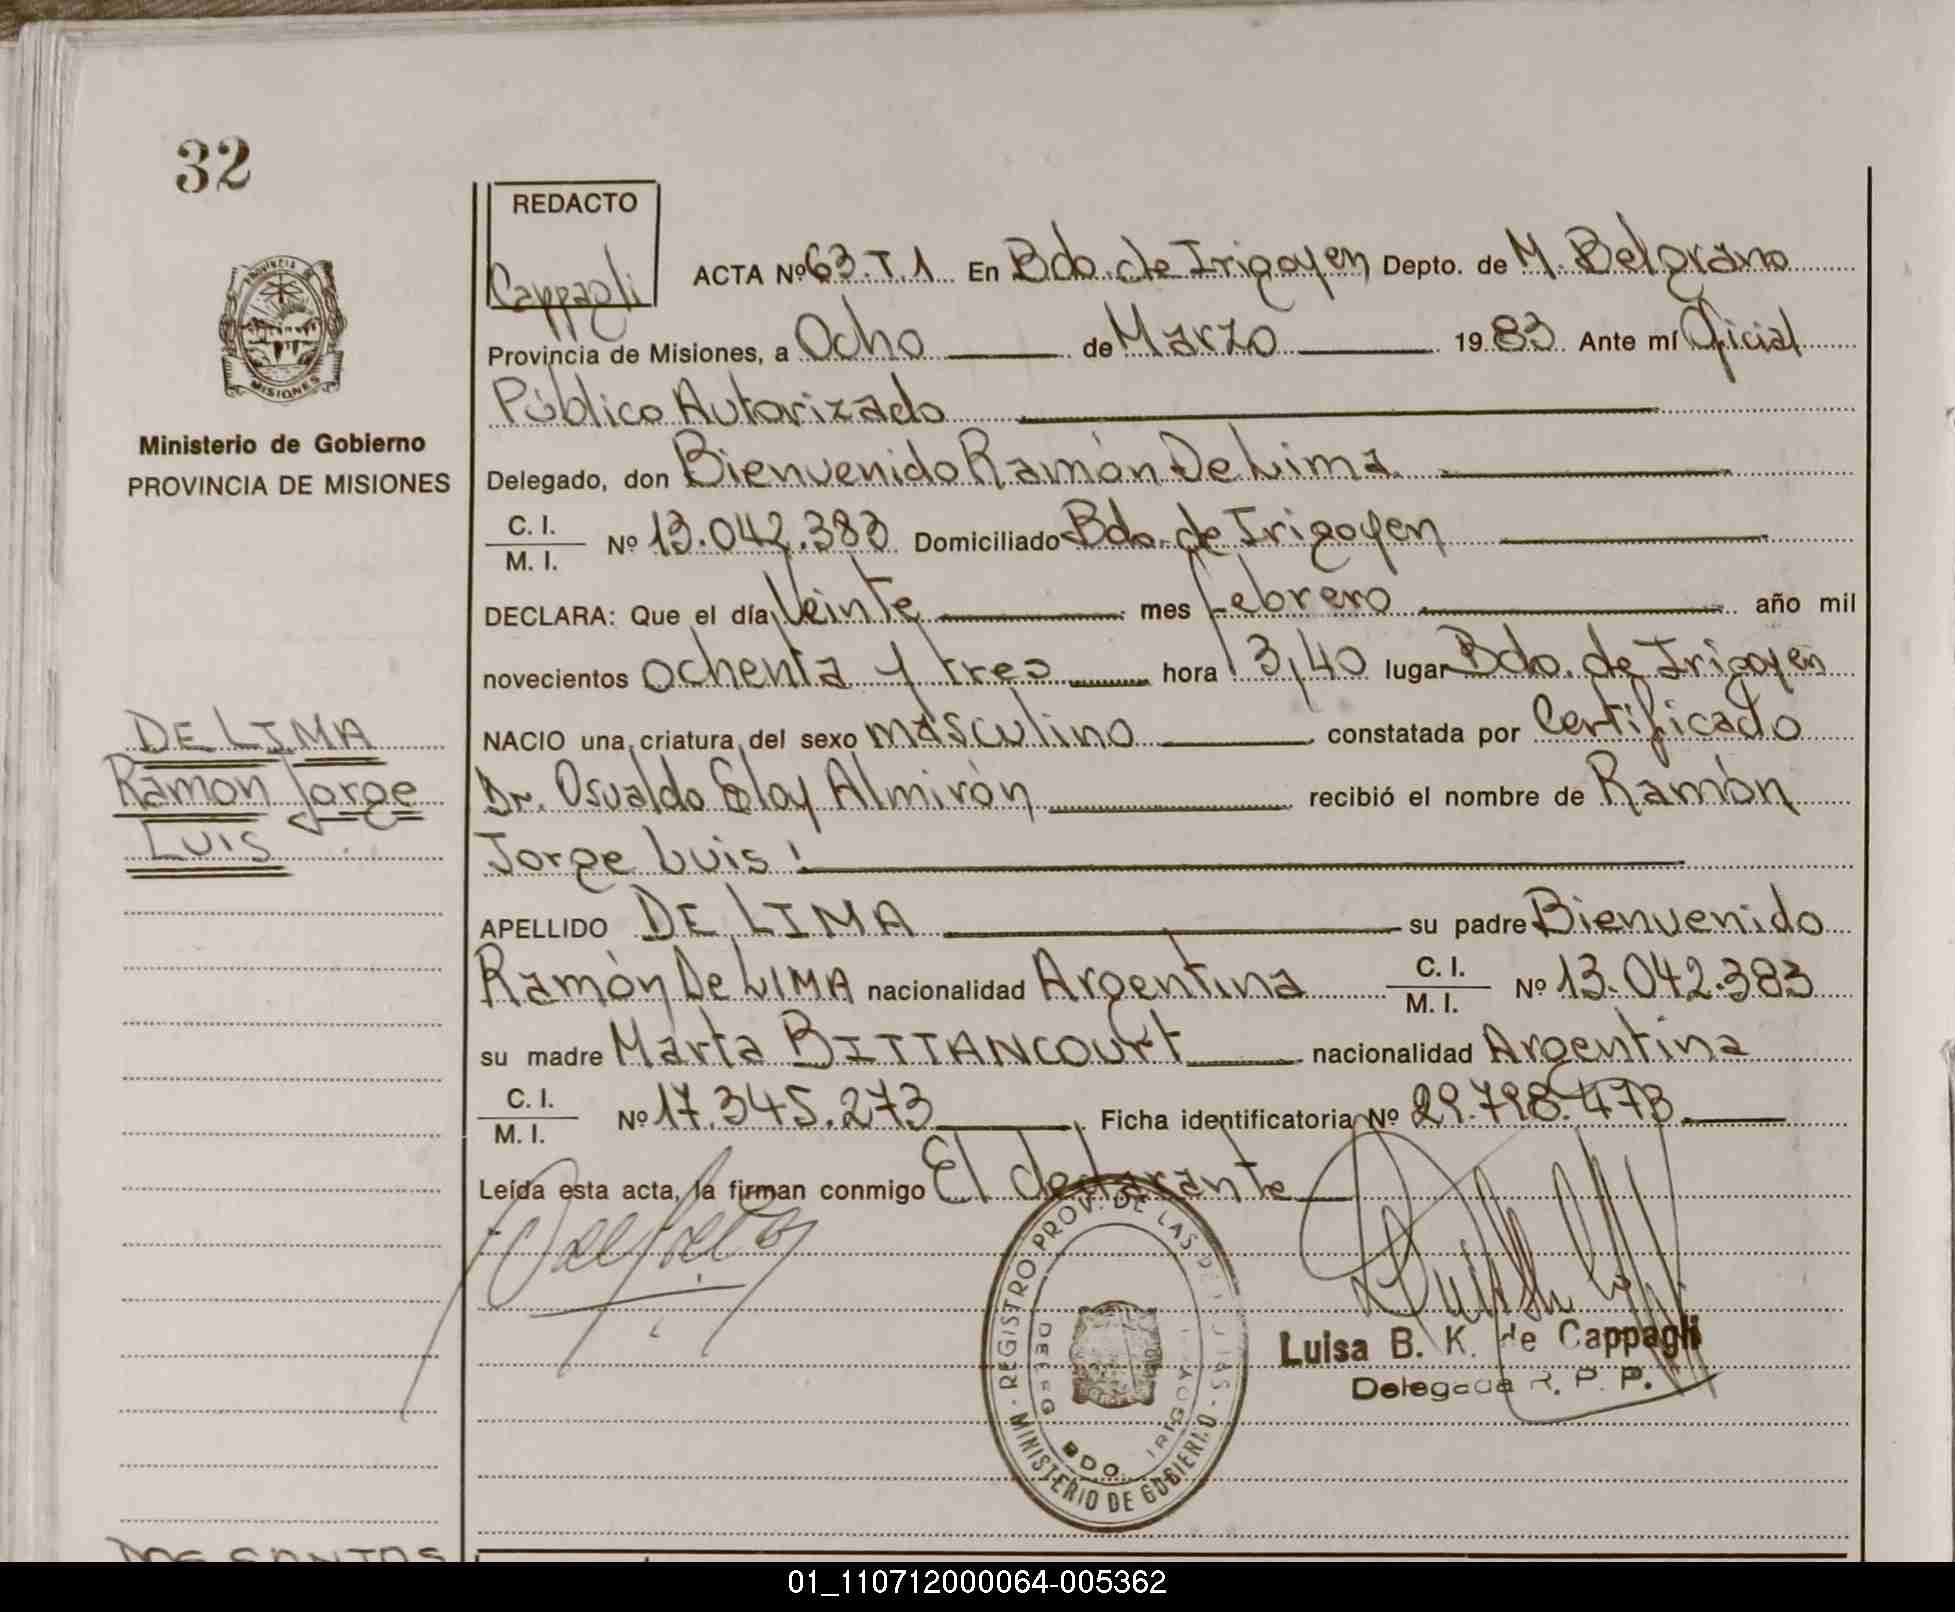 32
REDACTO
Cappagli
ACTA Nº 63.T.1 En Bdo. de Irigoyen Depto. de M. Belgrano
Provincia de Misiones, a Ocho de Marzo 1983 Ante mí Oficial
Público Autorizado
Delegado, don Bienvenido Ramón De Lima
C. I.
M. I.
Nº 13.042.383 Domiciliado Bdo. de Irigoyen
DECLARA: Que el día Veinte mes Febrero año mil
novecientos ochenta y tres hora 13,40 lugar Bdo. de Irigoyen
NACIO una criatura del sexo masculino constatada por Certificado
Dr. Osvaldo Eloy Almirón recibió el nombre de Ramón
Jorge Luis
APELLIDO DE LIMA su padre Bienvenido
Ramón De LIMA nacionalidad Argentina C. I. M. I. Nº 13.042.383
su madre Marta BITTANCOURT nacionalidad Argentina
C. I.
M. I.
Nº 17.345.273 Ficha identificatoria Nº 29.798.473
Leída esta acta, la firman conmigo El declarante
PROVINCIA
MISIONES
Ministerio de Gobierno
PROVINCIA DE MISIONES
DE LIMA
Ramon Jorge
LUIS
REGISTRO PROV. DE LAS PERSONAS
MINISTERIO DE GOBIERNO
BDO. IRIGOYEN
Luisa B. K. de Cappagli
Delegada R. P. P.
DOS SANTOS
01_110712000064-005362